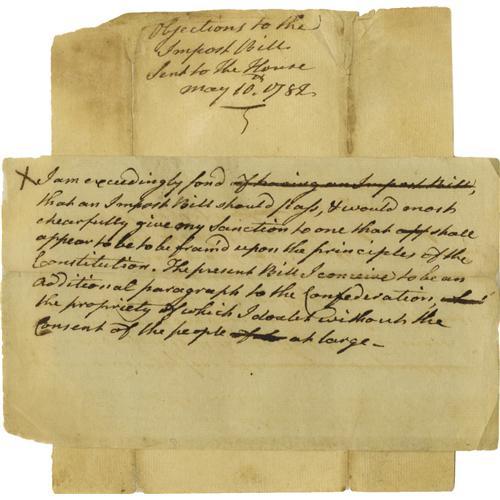 Objections to the
Impost Bill
Sent to the House
may 10th. 1782
X I am exceedingly fond of having an Impost Bill,
that an Impost Bill should pass, & would most
chearfully give my Sanction to one that app shall
appear to be to be fram'd upon the principles of the
Constitution. The present Bill I conceive to be an
additional paragraph to the Confederation,
the propriety of which I doubt without the
Consent of the people at large_